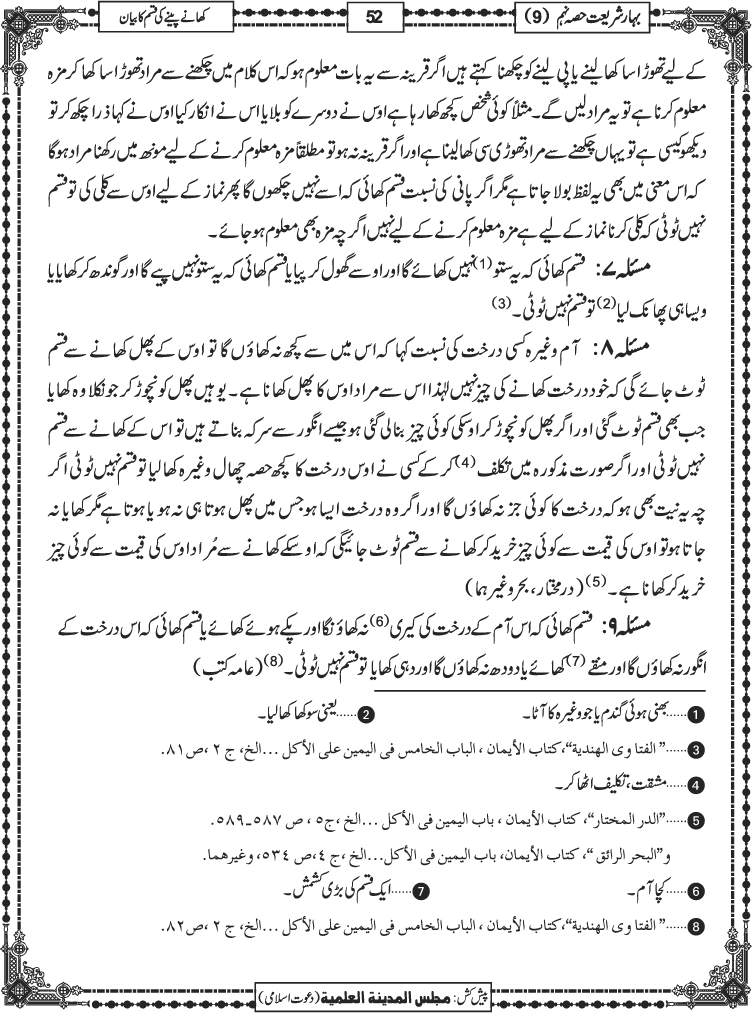 بہارِ شریعت حصہ نہم (9)
52
کھانے پینے کی قسم کا بیان
کے لیے تھوڑا سا کھا لینے یا پی لینے کو چکھنا کہتے ہیں اگر قرینہ سے یہ بات معلوم ہو کہ اس کلام میں چکھنے سے مراد تھوڑا سا کھا کر مزہ
معلوم کرنا ہے تو یہ مراد لیں گے۔ مثلاً کوئی شخص کچھ کھا رہا ہے اوس نے دوسرے کو بلایا اس نے انکار کیا اوس نے کہا ذرا چکھ کر تو
دیکھو کیسی ہے تو یہاں چکھنے سے مراد تھوڑی سی کھا لینا ہے اور اگر قرینہ نہ ہو تو مطلقاً مزہ معلوم کرنے کے لیے مونھ میں رکھنا مراد ہوگا
کہ اس معنی میں بھی یہ لفظ بولا جاتا ہے مگر اگر پانی کی نسبت قسم کھائی کہ اسے نہیں چکھوں گا پھر نماز کے لیے اوس سے کلی کی تو قسم
نہیں ٹوٹی کہ کلی کرنا نماز کے لیے ہے مزہ معلوم کرنے کے لیے نہیں اگرچہ مزہ بھی معلوم ہو جائے۔
مسئلہ ۷: قسم کھائی کہ یہ ستو (1) نہیں کھائے گا اور اوسے گھول کر پیا یا قسم کھائی کہ یہ ستو نہیں پیے گا اور گوندھ کر کھایا یا
ویسا ہی پھانک لیا (2) تو قسم نہیں ٹوٹی۔ (3)
مسئلہ ۸: آم وغیرہ کسی درخت کی نسبت کہا کہ اس میں سے کچھ نہ کھاؤں گا تو اوس کے پھل کھانے سے قسم
ٹوٹ جائے گی کہ خود درخت کھانے کی چیز نہیں لہٰذا اس سے مراد اوس کا پھل کھانا ہے۔ یوہیں پھل کو نچوڑ کر جو نکلا وہ کھایا
جب بھی قسم ٹوٹ گئی اور اگر پھل کو نچوڑ کر اوسکی کوئی چیز بنالی گئی ہو جیسے انگور سے سرکہ بناتے ہیں تو اس کے کھانے سے قسم
نہیں ٹوٹی اور اگر صورت مذکورہ میں تکلف (4) کر کے کسی نے اوس درخت کا کچھ حصہ چھال وغیرہ کھا لیا تو قسم نہیں ٹوٹی اگر
چہ یہ نیت بھی ہو کہ درخت کا کوئی جز نہ کھاؤں گا اور اگر وہ درخت ایسا ہو جس میں پھل ہوتا ہی نہ ہو یا ہوتا ہے مگر کھایا نہ
جاتا ہو تو اوس کی قیمت سے کوئی چیز خرید کر کھانے سے قسم ٹوٹ جائیگی کہ اوسکے کھانے سے مُراد اوس کی قیمت سے کوئی چیز
خرید کر کھانا ہے۔ (5) (درمختار، بحر وغیرہما)
مسئلہ ۹: قسم کھائی کہ اس آم کے درخت کی کیری (6) نہ کھاؤنگا اور پکے ہوئے کھائے یا قسم کھائی کہ اس درخت کے
انگور نہ کھاؤں گا اور منقے (7) کھائے یا دودھ نہ کھاؤں گا اور دہی کھایا تو قسم نہیں ٹوٹی۔ (8) (عامہ کتب)
1......بھنی ہوئی گندم یا جو وغیرہ کا آٹا۔ 2......یعنی سوکھا کھالیا۔
3......”الفتاوی الهندية“، کتاب الأیمان ، الباب الخامس فی الیمین علی الأکل ...الخ، ج ۲ ،ص ۸۱.
4......مشقت، تکلیف اٹھا کر۔
5......”الدر المختار“، کتاب الأیمان ، باب الیمین فی الأکل ...الخ ،ج۵ ، ص ۵۸۷۔۵۸۹.
و”البحر الرائق“، کتاب الأیمان، باب الیمین فی الأکل...الخ ،ج ۴،ص ۵۳٤، وغیرهما.
6......کچا آم۔ 7......ایک قسم کی بڑی کشمش۔
8......”الفتاوی الهندية“،کتاب الأیمان ، الباب الخامس فی الیمین علی الأکل ...الخ، ج ۲ ،ص۸۲.
پیش کش: مجلس المدينة العلمية (دعوتِ اسلامی)